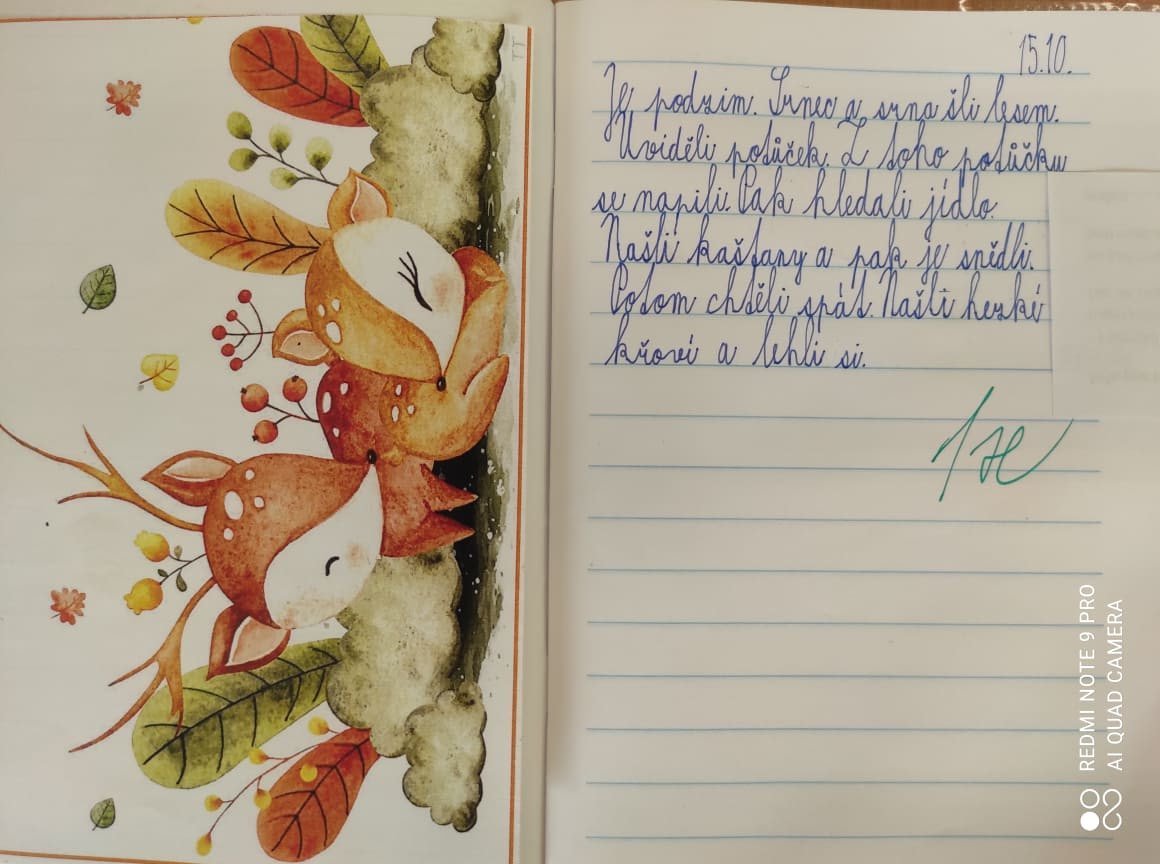 15.10.
Je podzim. Srnec a srna šli lesem.
Uviděli potůček. Z toho potůčku
se napili. Pak hledali jídlo.
Našli kaštany a pak je snědli.
Potom chtěli spát. Našli hezké
křoví a lehli si.
REDMI NOTE 9 PRO
AI QUAD CAMERA